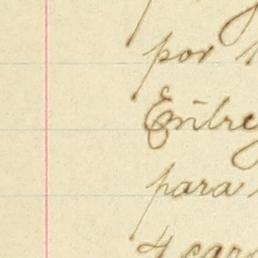 por
Entre
para
4 car